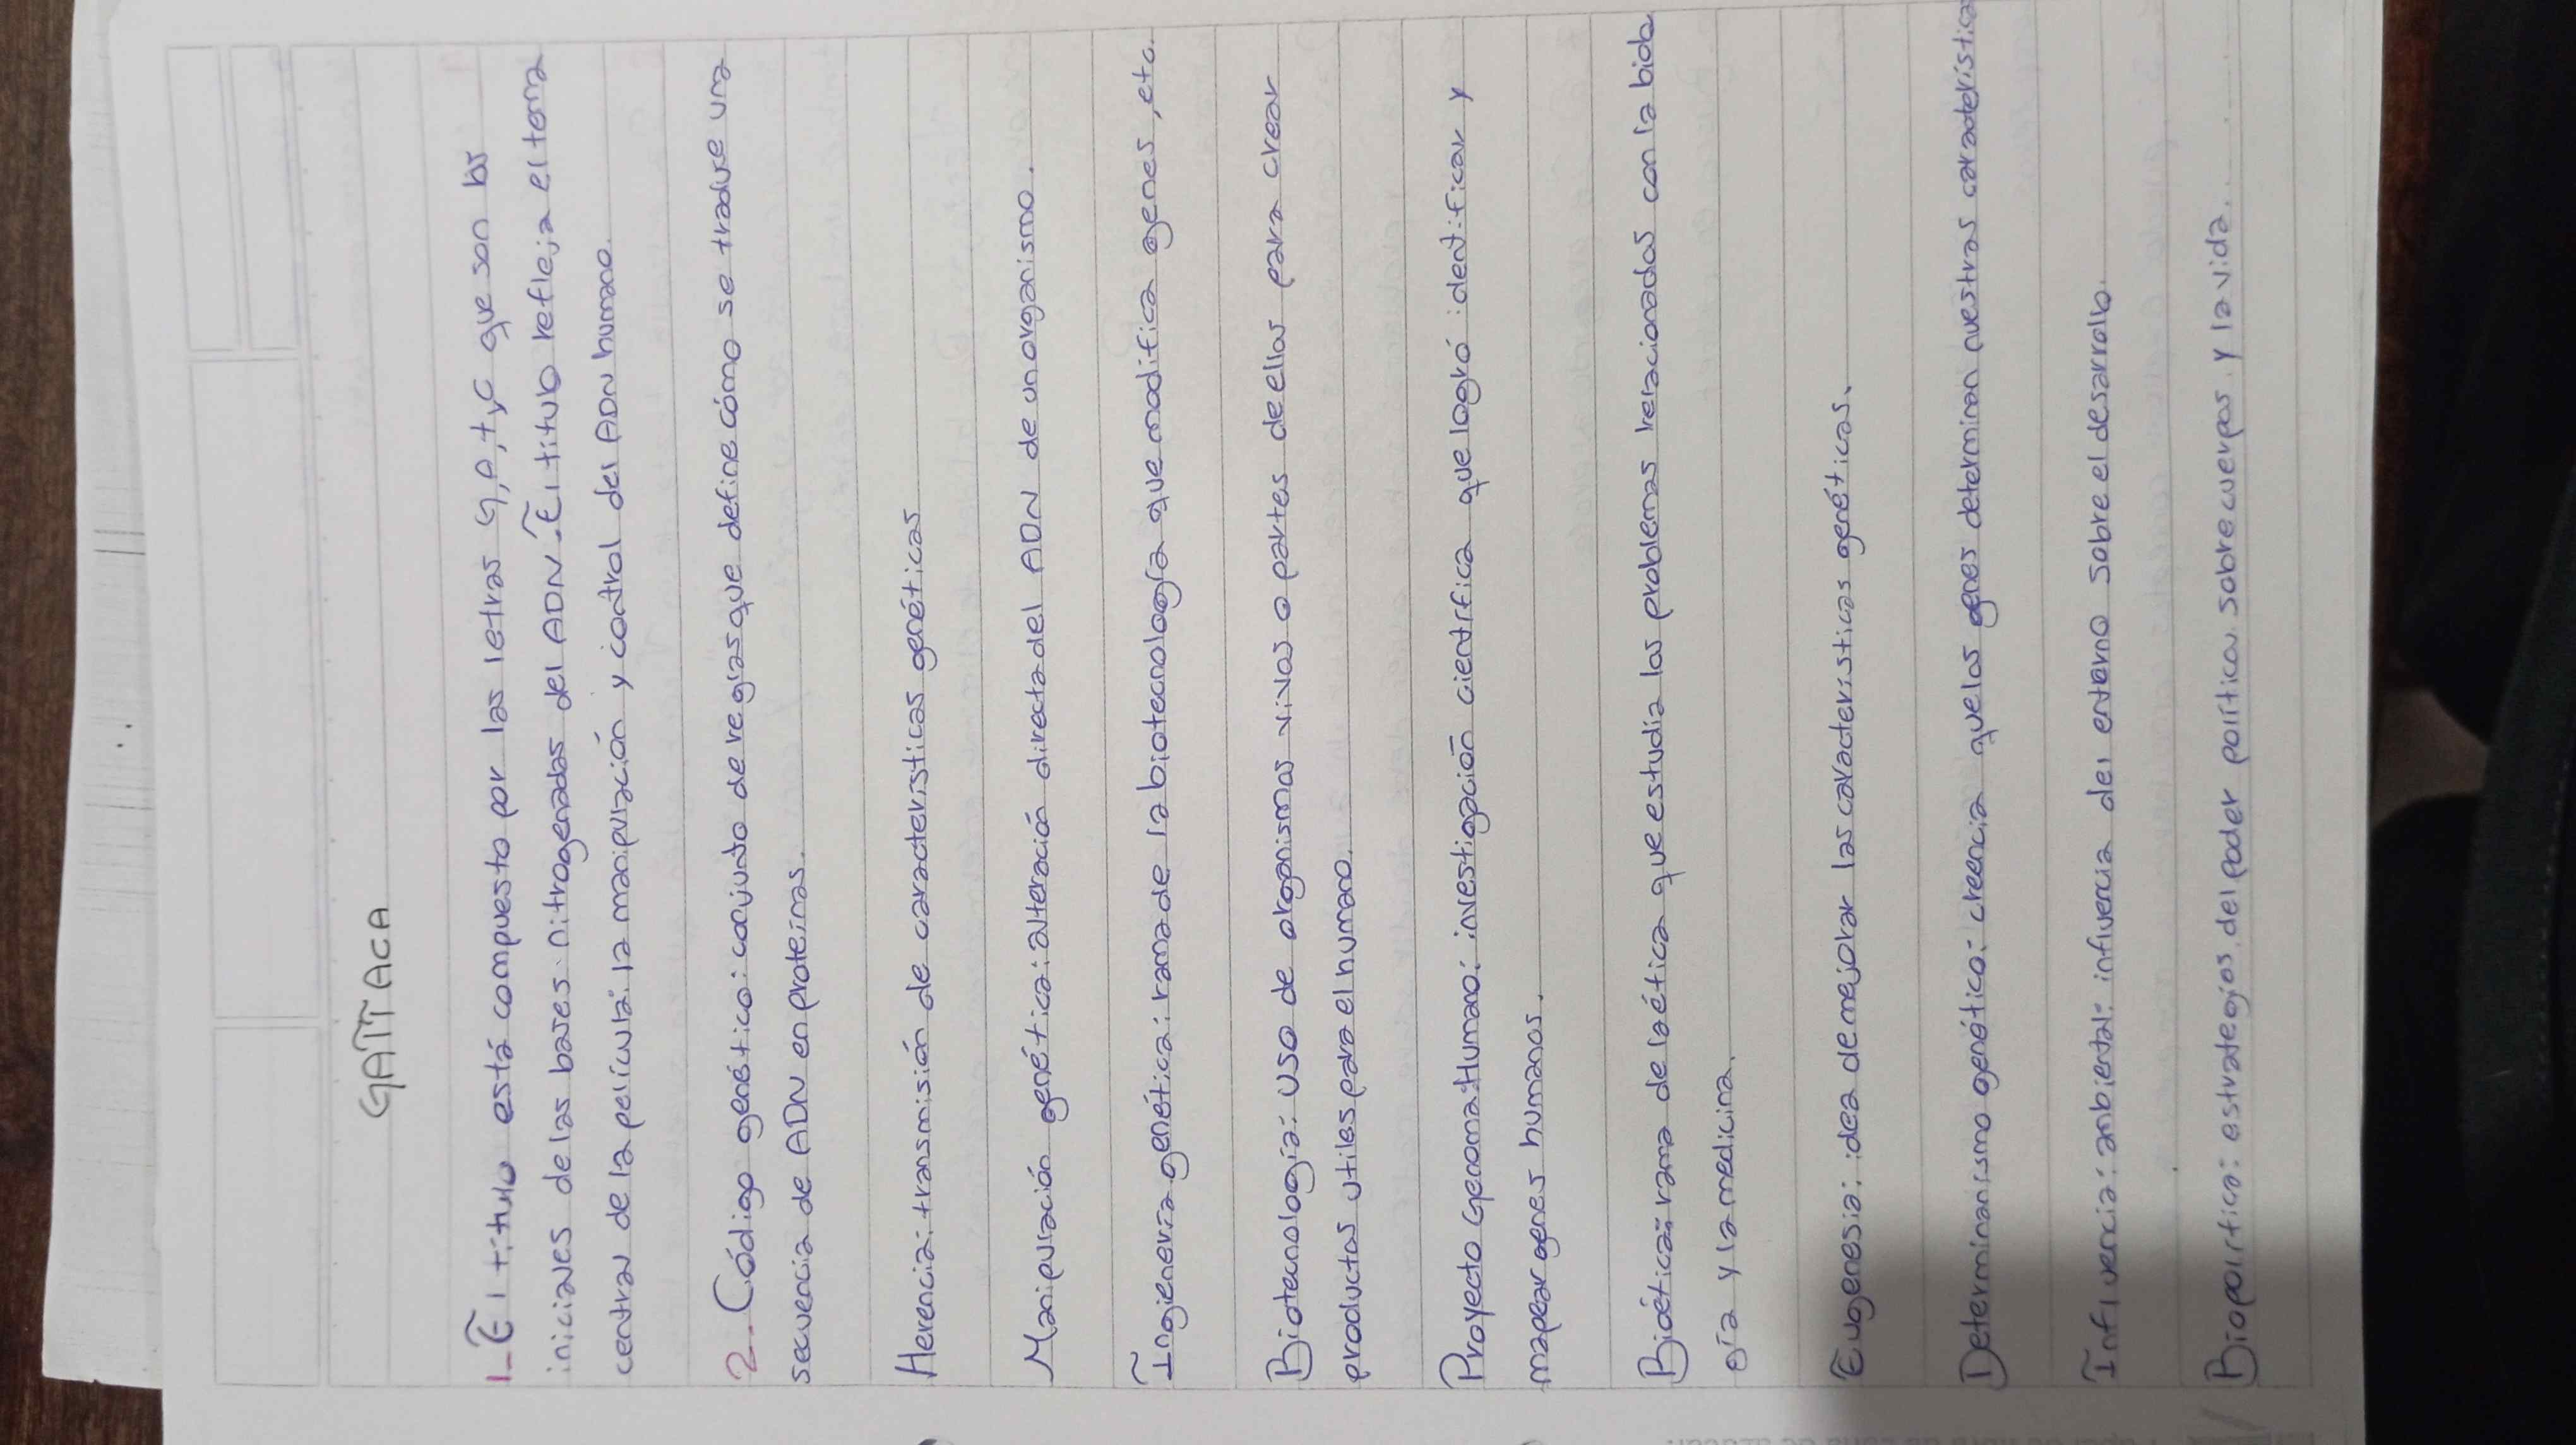 GATTACA
1_ El título está compuesto por las letras G, A, t y C que son las
iniciales de las bases nitrogenadas del ADN. El título refleja el tema
central de la película: la manipulación y control del ADN humano.
2_ Código genético: conjunto de reglas que define cómo se traduce una
secuencia de ADN en proteínas.
Herencia: transmisión de características genéticas
Manipulación genética: alteración directa del ADN de un organismo.
Ingieneria genética: rama de la biotecnología que modifica genes, etc.
Biotecnología: uso de organismos vivos o partes de ellos para crear
productos utiles para el humano.
Proyecto Genoma Humano: investigación científica que logró identificar y
mapear genes humanos.
Bioética: rama de la ética que estudia los problemas relacionados con la biolo
gía y la medicina.
Eugenesia: idea de mejorar las características genéticas.
Determinanismo genético: creencia que los genes determinan nuestras caraterística
Influencia: ambiental: influencia del entorno sobre el desarrollo.
Biopolítica: estrategias del poder político sobre cuerpos y la vida.